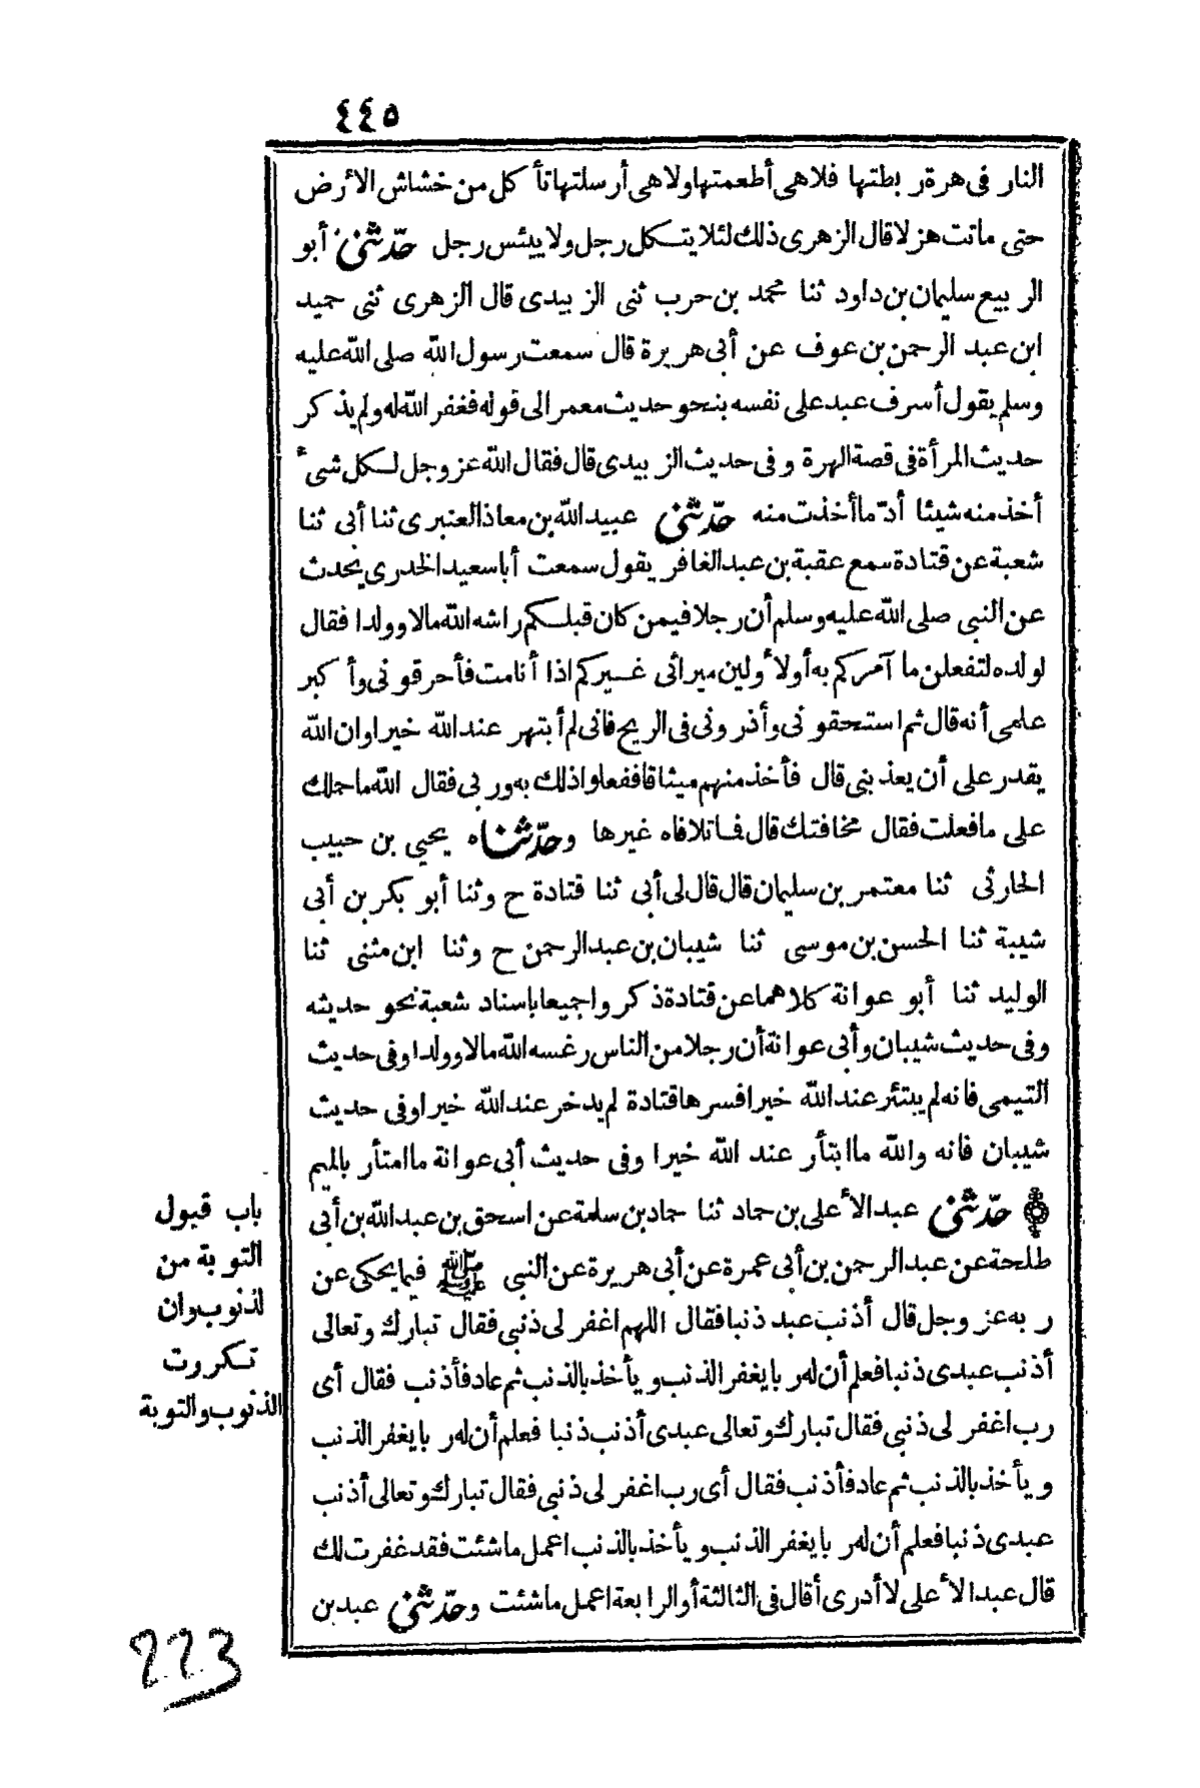 ٤٤٥
النار فى هرة ربطتها فلا هى أطعمتها ولا هى أرسلتها تأكل من خشاش الارض
حتى ماتت هزلا قال الزهرى ذلك لئلا يتكل رجل ولا ييئس رجل حدّثنى أبو
الربيع سليمان بن داود ثنا محمد بن حرب ثنى الزبيدى قال الزهرى ثنى حميد
ابن عبد الرحمن بن عوف عن أبى هريرة قال سمعت رسول الله صلى الله عليه
وسلم يقول أسرف عبد على نفسه بنحو حديث معمر الى قوله فغفر الله له ولم يذكر
حديث المرأة فى قصة الهرة وفى حديث الزبيدى قال فقال الله عز وجل لكل شىء
أخذ منه شيئا أدّ ما أخذت منه حدّثنى عبيد الله بن معاذ العنبرى ثنا أبى ثنا
شعبة عن قتادة سمع عقبة بن عبد الغافر يقول سمعت أبا سعيد الخدرى يحدث
عن النبى صلى الله عليه وسلم أن رجلا فيمن كان قبلكم راشه الله مالا وولدا فقال
لولده لتفعلن ما آمركم به أو لأولين ميراثى غيركم اذا أنا مت فأحرقونى وأكبر
علمى أنه قال ثم استحقونى وأذرونى فى الريح فانى لم أبتهر عند الله خيرا وان الله
يقدر على أن يعذبنى قال فأخذ منهم ميثاقا ففعلوا ذلك به وربى فقال الله ما حملك
على ما فعلت فقال مخافتك قال فما تلافاه غيرها وحدّثناه يحيى بن حبيب
الحارثى ثنا معتمر بن سليمان قال قال لى أبى ثنا قتادة ح وثنا أبو بكر بن أبى
شيبة ثنا الحسن بن موسى ثنا شيبان بن عبد الرحمن ح وثنا ابن مثنى ثنا
الوليد ثنا أبو عوانة كلاهما عن قتادة ذكروا جميعا باسناد شعبة نحو حديثه
وفى حديث شيبان وأبى عوانة أن رجلا من الناس رغسه الله مالا وولدا وفى حديث
التيمى فانه لم يبتئر عند الله خيرا فسرها قتادة لم يدخر عند الله خيرا وفى حديث
شيبان فانه والله ما ابتأر عند الله خيرا وفى حديث أبى عوانة ما امتأر بالميم
حدّثنى عبد الأعلى بن حماد ثنا حماد بن سلمة عن اسحق بن عبد الله بن أبى
طلحة عن عبد الرحمن بن أبى عمرة عن أبى هريرة عن النبى ﷺ فيما يحكى عن
ربه عز وجل قال أذنب عبد ذنبا فقال اللهم اغفر لى ذنبى فقال تبارك وتعالى
أذنب عبدى ذنبا فعلم أن له ربا يغفر الذنب ويأخذ بالذنب ثم عاد فأذنب فقال أى
رب اغفر لى ذنبى فقال تبارك وتعالى عبدى أذنب ذنبا فعلم أن له ربا يغفر الذنب
ويأخذ بالذنب ثم عاد فأذنب فقال أى رب اغفر لى ذنبى فقال تبارك وتعالى أذنب
عبدى ذنبا فعلم أن له ربا يغفر الذنب ويأخذ بالذنب اعمل ما شئت فقد غفرت لك
قال عبد الأعلى لا أدرى أقال فى الثالثة أو الرابعة اعمل ما شئت وحدّثنى عبد بن
باب قبول
التوبة من
لذنوب وان
تكررت
الذنوب والتوبة
223